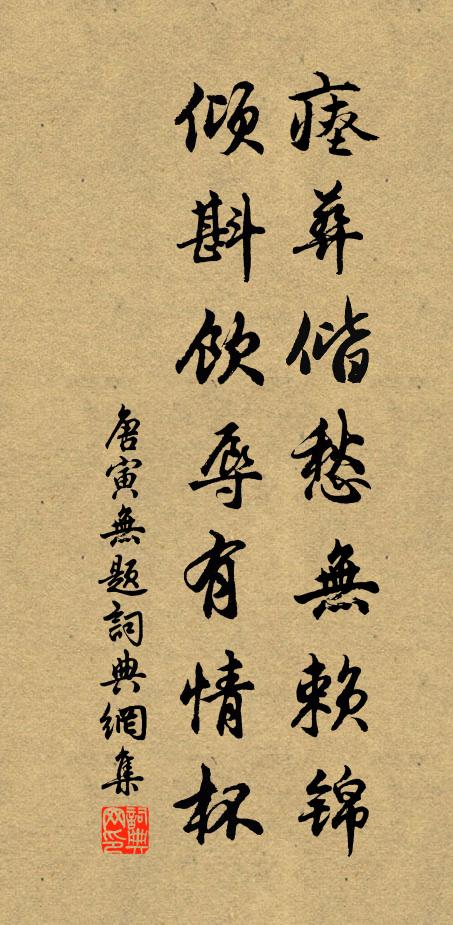 瘞葬偕愁無賴錦
傾斟飲辱有情杯
唐寅無題詞典網集
詞典網印